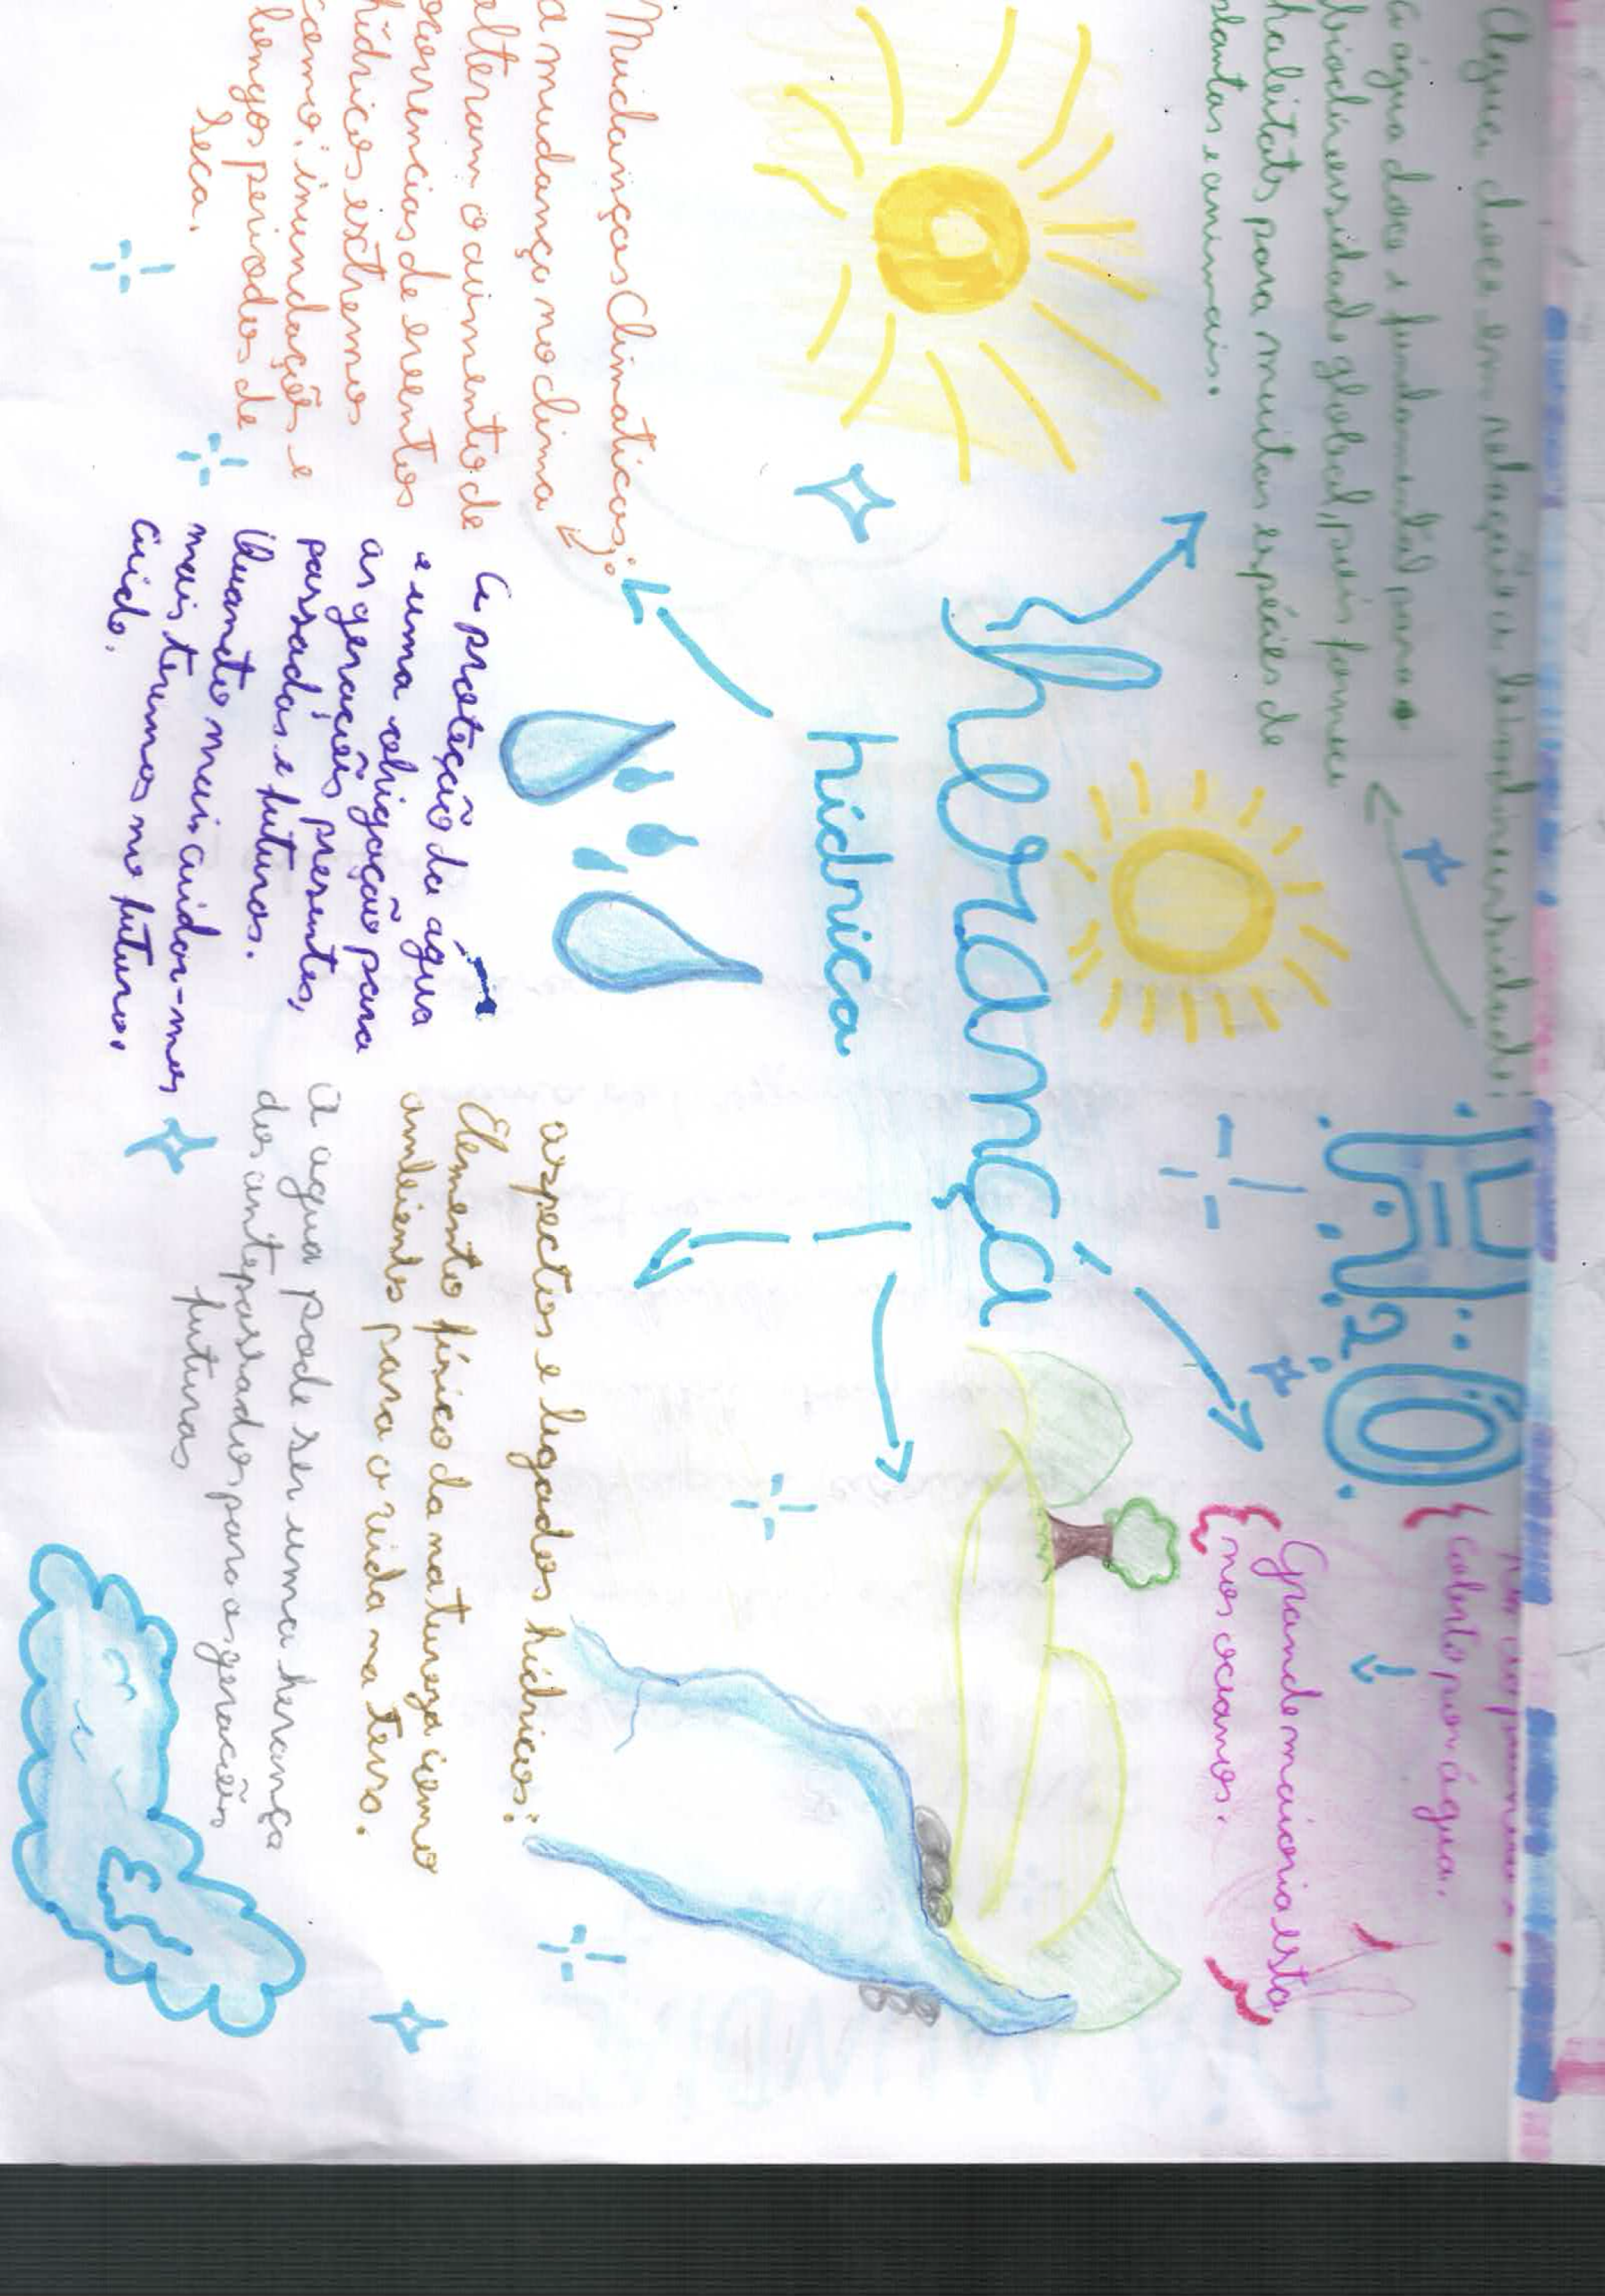 herança
hídrica
H2O
Água doce em relação a biodiversidade:
a água doce e fundamental para a
biodiversidade global, pois fornece
habitats para muitas espécies de
plantas e animais.
coberto por água.
Grande maioria esta
nos oceanos.
Mudanças Climaticas:
a mudança no clima
alteram o aumento de
ocorrencias de eventos
hídricos extremos
como: inundações e
longos periodos de
seca.
A proteção da água
e uma obrigação para
as gerações presentes,
passadas e futuras.
Quanto mais cuidar-mos
mais teremos no futuro.
Cuide.
aspectos e legados hídricos:
Elemento físico da natureza como
ambientes para a vida na terra.
A agua pode ser uma herança
dos antepassados para as gerações
futuras